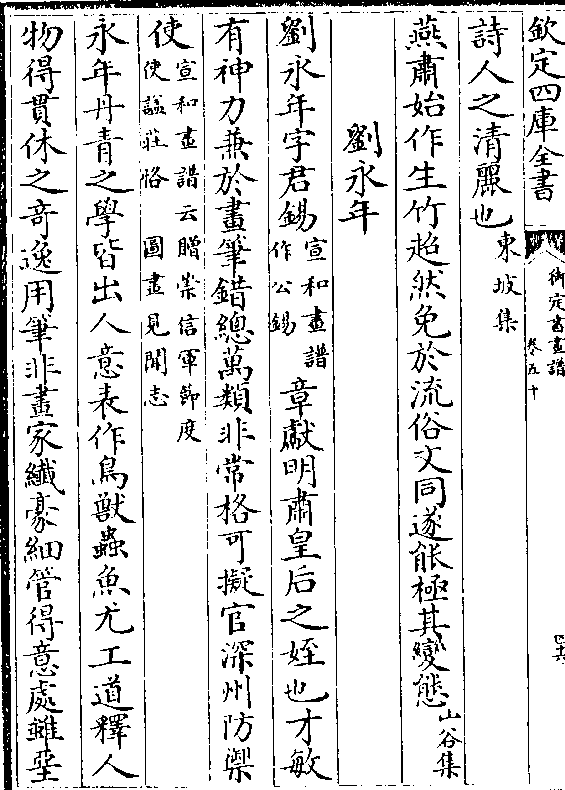 欽定四庫全書
御定書畫譜
卷五十
四六
詩人之清麗也東坡集
燕肅始作生竹超然免於流俗文同遂能極其變態山谷集
劉永年
劉永年字君錫宣和畫譜作公錫章獻明肅皇后之姪也才敏
有神力兼於畫筆錯總萬類非常格可擬官深州防禦
使宣和畫譜云贈崇信軍節度使諡莊恪圖畫見聞志
永年丹青之學皆出人意表作鳥獸蟲魚尤工道釋人
物得貫休之奇逸用筆非畫家纖豪細管得意處雖堊